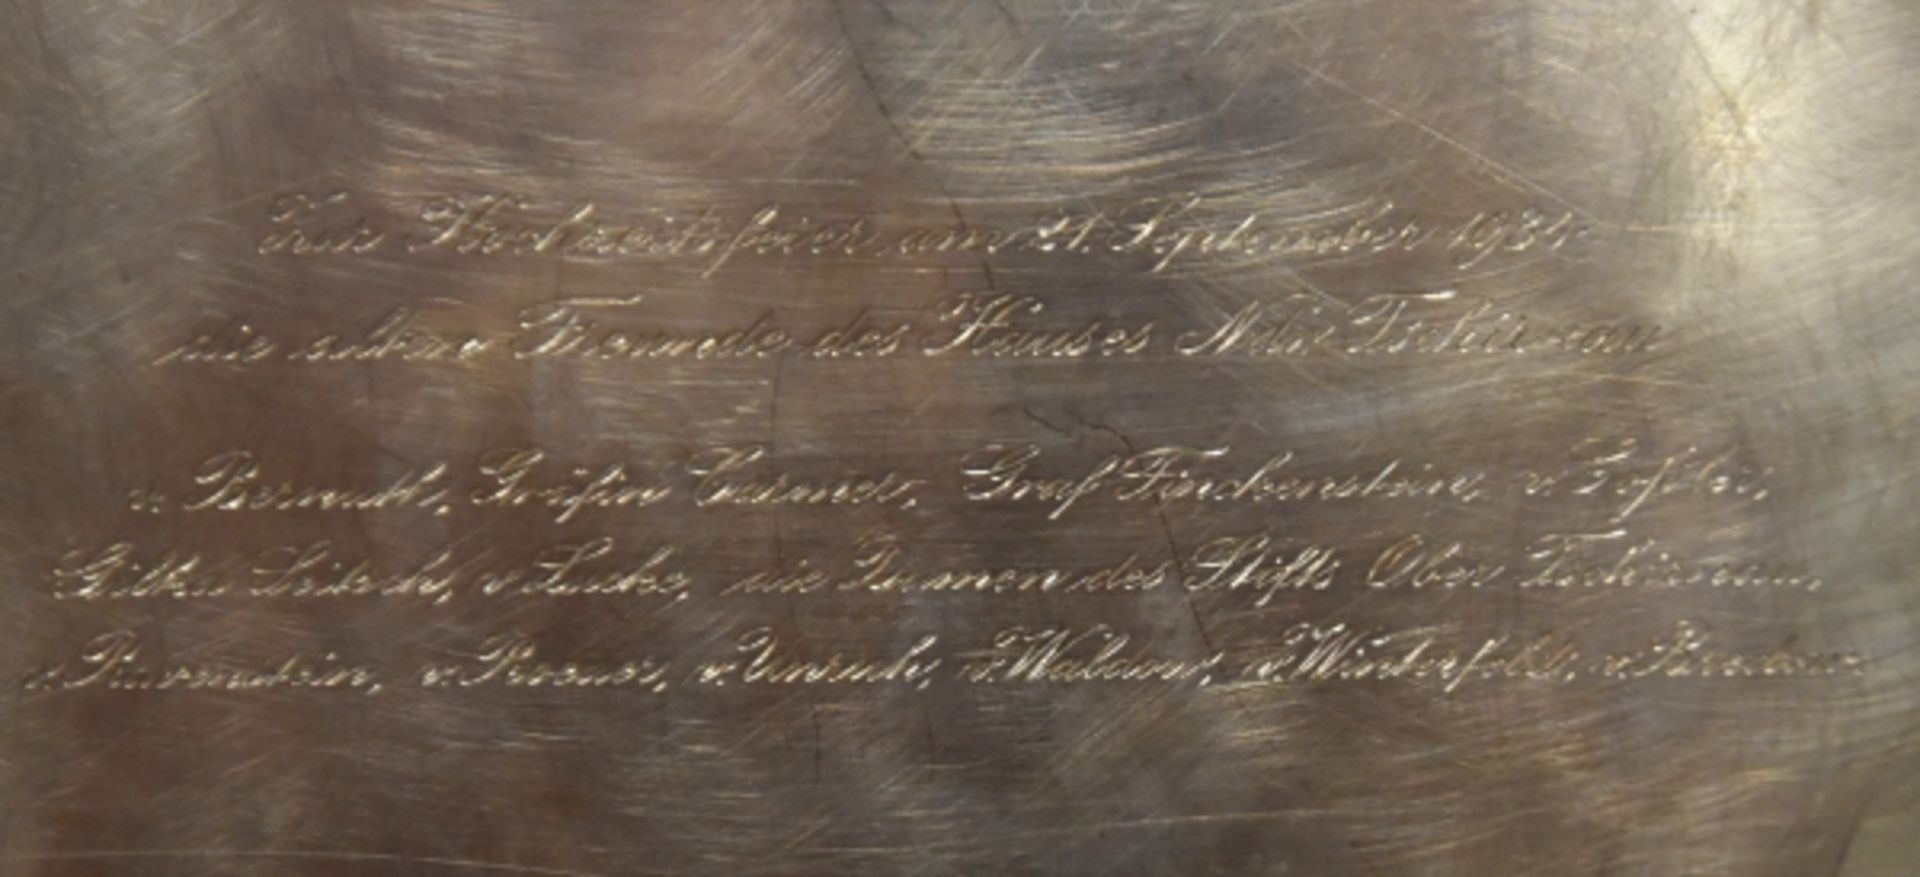 Zur Hochzeitsfeier am 21. September 1934
die alten Freunde des Hauses Ndr. Tschirnau
v. Bernuth, Gräfin Carmer, Graf Finckenstein, v.
Gilka v. Lucke, die Damen des Stifts Ober Tschirnau,
v. Ravenstein, v. Roeder, v. Unruh, v. Waldow, v. Winterfeld, v. Bredow